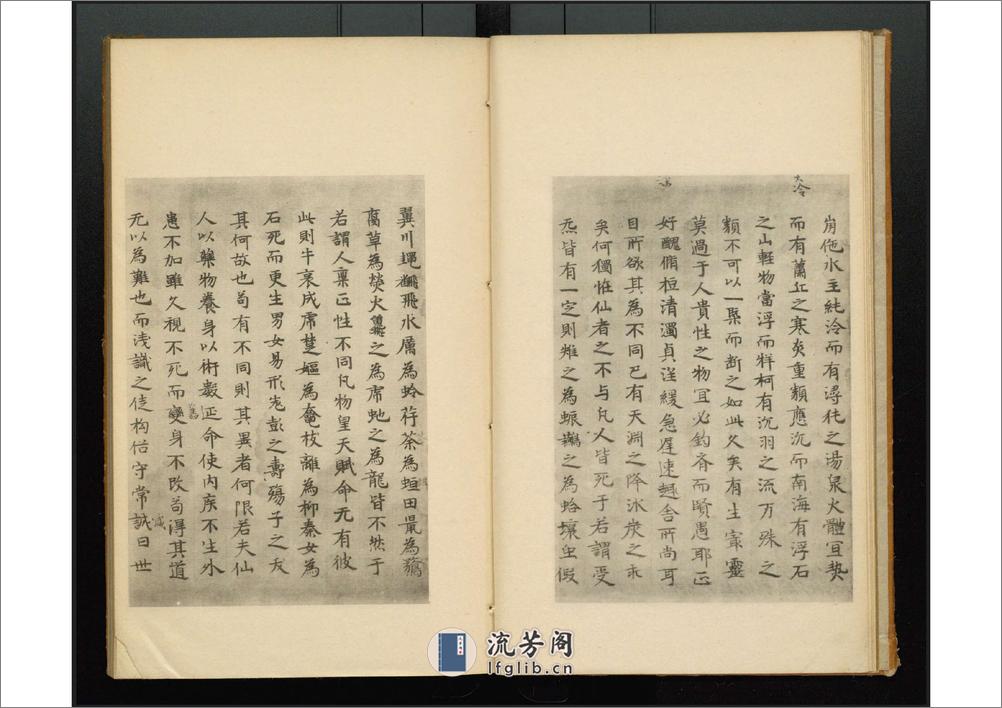 冷
水主純泠而有潯秏之湯泉火體宜熱
而有蕭丘之寒炎重類應沉而南海有浮石
之山輕物當浮而牂柯有沉羽之流万殊之
類不可以一槩而断之如此久矣有生寔靈
莫過于人貴性之物宜必鈞齊而賢愚耶正
好醜脩短清濁貞淫緩急遲速趣舍所尚耳
目所欲其為不同已有天淵之降冰炭之乖
矣何獨恠仙者之不与凡人皆死于若謂受
炁皆有一定則雉之為蜃鷃之為蛤壤虫假
翼川蛙飜飛水蠣為蛉荇荼為蛆田鼠為鴽
腐草為熒火鼉之為虎虵之為龍皆不然于
若謂人稟正性不同凡物望天賦命无有彼
此則牛哀成虎楚嫗為黿枝離為柳秦女為
石死而更生男女易形老彭之壽殤子之夭
其何故也苟有不同則其異者何限若夫仙
人以藥物養身以術數延命使内疾不生外
患不加雖久視不死而舊身不改苟得其道
无以為難也而浅識之徒拘俗守常誠曰世
流芳阁
lfglib.cn